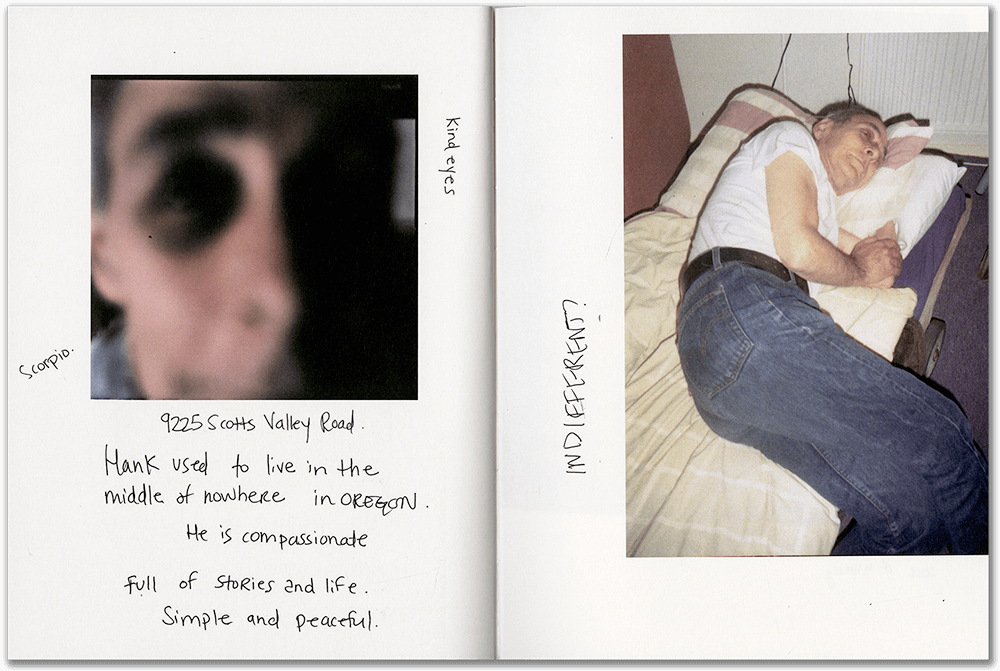 Kind eyes
Scorpio.
9225 Scotts Valley Road.
Hank used to live in the
middle of nowhere in OREGON.
He is compassionate
full of stories and life.
Simple and peaceful.
INDIFFERENT?